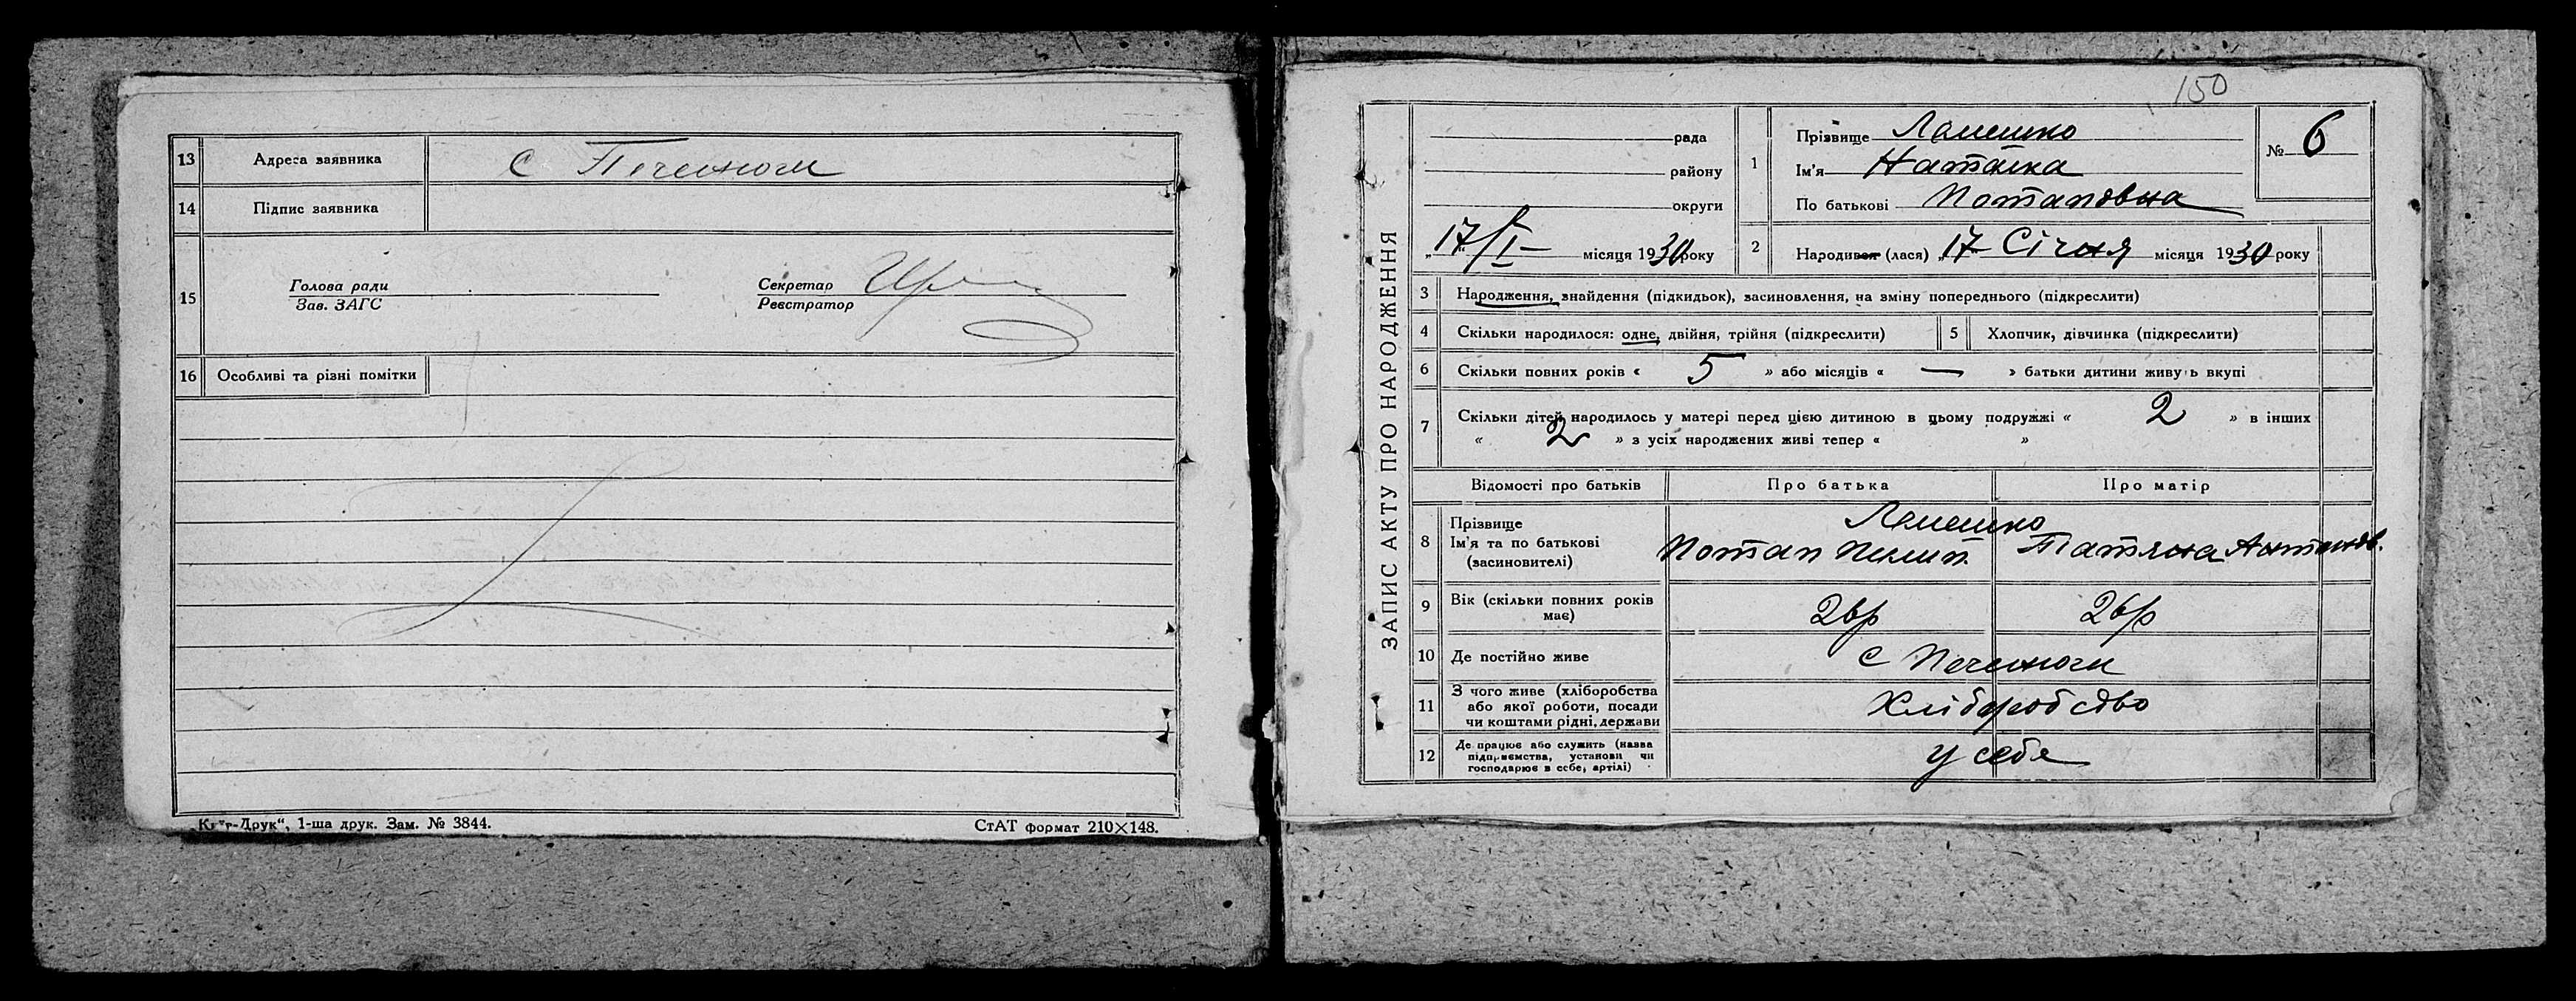 13 Адреса заявника с Печеноги
14 Підпис заявника
15 Голова ради
Зав. ЗАГС
Секретар
Реєстратор
16 Особливі та різні помітки
Друк“, 1-ша друк. Зам. № 3844.
СтАТ формат 210×148.
150
ЗАПИС АКТУ ПРО НАРОДЖЕННЯ
рада
району
округи
„17/I місяця 1930 року
1 Прізвище Лемешко
Ім'я Наталка
По батькові Потаповна
№ 6
2 Народився (лася) „17 Січня місяця 1930 року
3 Народження, знайдення (підкидьок), засиновлення, на зміну попереднього (підкреслити)
4 Скільки народилося: одне, двійня, трійня (підкреслити)
5 Хлопчик, дівчинка (підкреслити)
6 Скільки повних років « 5 » або місяців « — » батьки дитини живуть вкупі
7 Скільки дітей народилось у матері перед цією дитиною в цьому подружжі « 2 » в інших
« 2 » з усіх народжених живі тепер « »
Відомості про батьків
Про батька
Про матір
8 Прізвище
Ім'я та по батькові
(засиновителі)
Лемешко
Потап Пилип.
Татяна Антонов.
9 Вік (скільки повних років
має)
26р
26р
10 Де постійно живе
с Печеноги
11 З чого живе (хліборобства
або якої роботи, посади
чи коштами рідні, держави
Хліборобство
12 Де працює або служить (назва
підприємства, установи чи
господарює в себе, артілі)
у себе